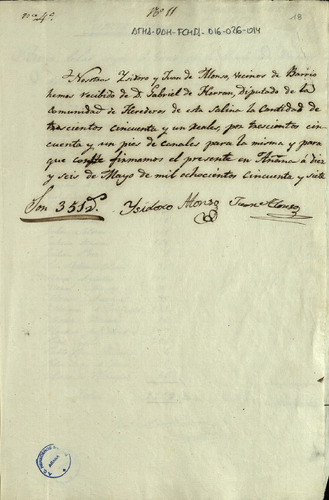 nº 4º
Nº 11
18
ATHA-DAH-FCHSA-016-026-014
Nosotros Ysidoro y Juan de Alonso, vecinos de Barrio
hemos recibido de D. Gabriel de Herran, diputado de la
Comunidad de Herederos de esta Salina la Cantidad de
trescientos cincuenta y un reales, por trescientos cin
cuenta y un pies de canales para la misma y para
que conste firmamos el presente en Añana á diez
y seis de Mayo de mil ochocientos cincuenta y siete
Son 351
Ysidoro Alonso
Juan Alonso